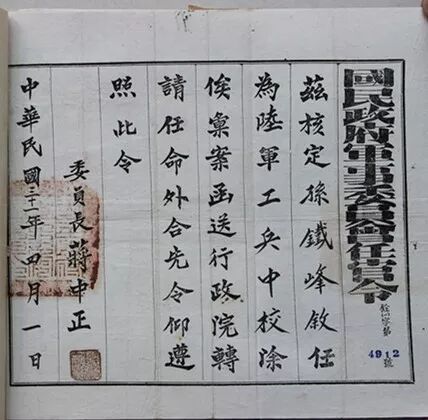 國民政府軍事委員會任官令
銓字第
4912號
茲核定孫鐵峰敘任
為陸軍工兵中校除
俟彙案函送行政院轉
請任命外合先令仰遵
照此令
委員長蔣中正
中華民國三十一年四月一日